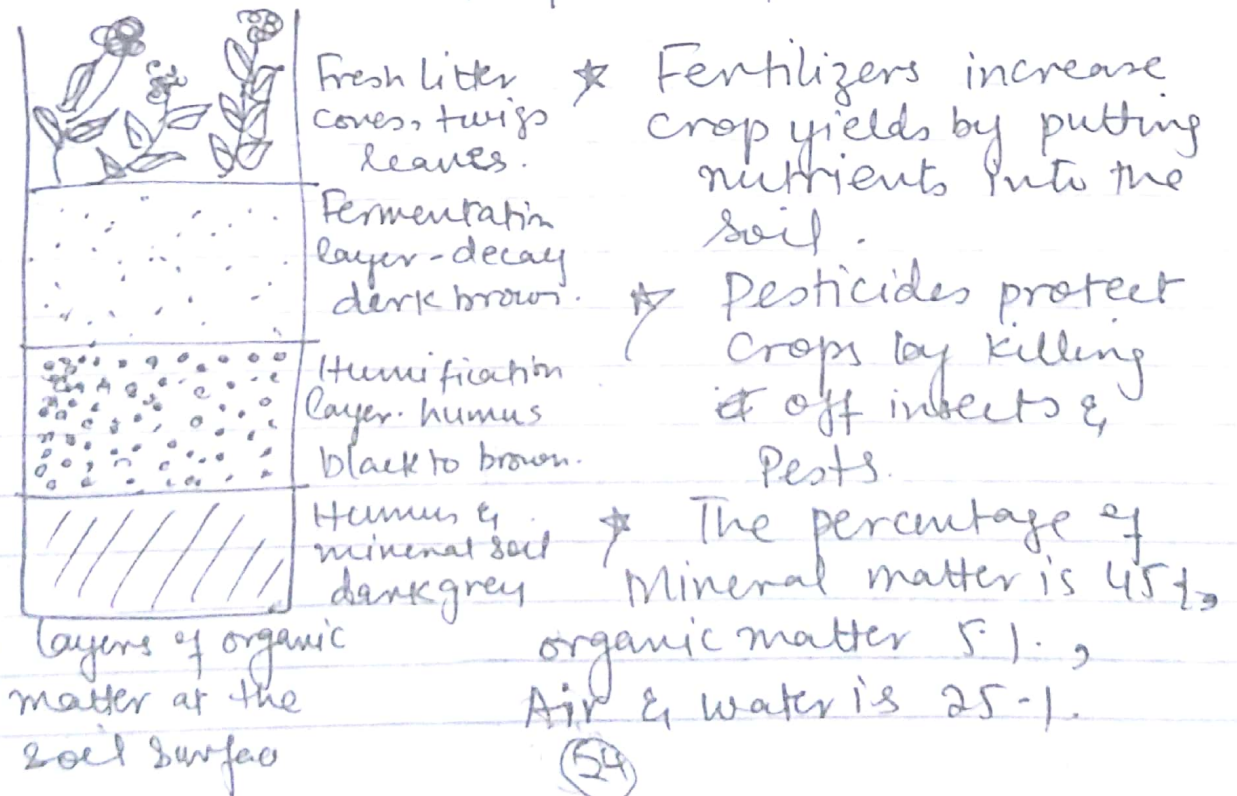 Fresh litter
cones, twigs
leaves.
Fermentatin
layer - decay
dark brown.
Humification
layer. humus
black to brown.
Humus &
mineral soil
dark grey
layers of organic
matter at the
soil surfac
★ Fertilizers increase
crop yields by putting
nutrients into the
soil.
★ Pesticides protect
crops by killing
off insects &
Pests.
★ The percentage of
Mineral matter is 45%,
organic matter 5%,
Air & water is 25%.
54